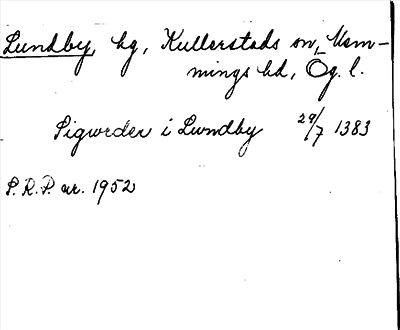 Lundby, by, Kullerstads sn, Mem-
mings hd, Ög. l.
Sigwrder i Lundby 29/7 1383
S.R.P. nr. 1952